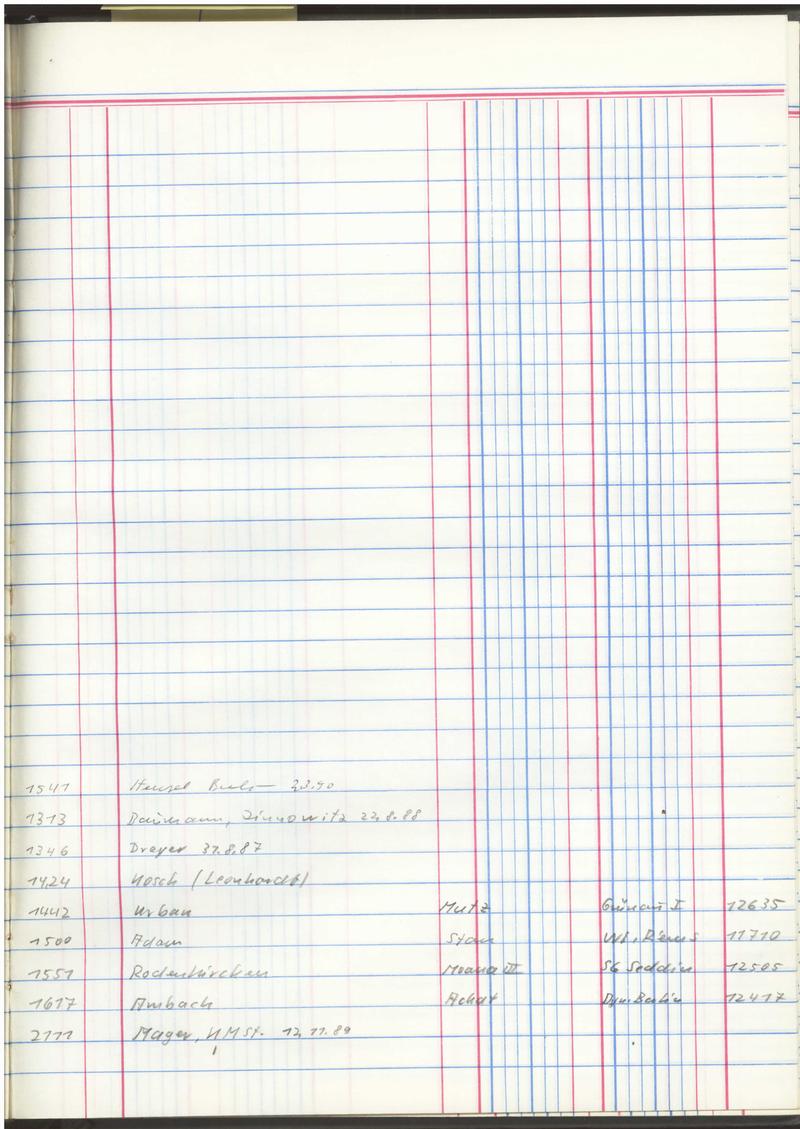 1541 Hensel 2.3.90
1313 Daumann, Zinnowitz 22.8.88
1346 Dreyer 31.8.87
1424 Hosch (Leonhardt)
1442 Urban Mutz Grünau I 12635
1500 Adam 11710
1551 Rodenkirchen Moana III SG Seddin 12505
1617 Ambach Achat Dyn. Berlin 12417
2111 Mager, 12.11.89